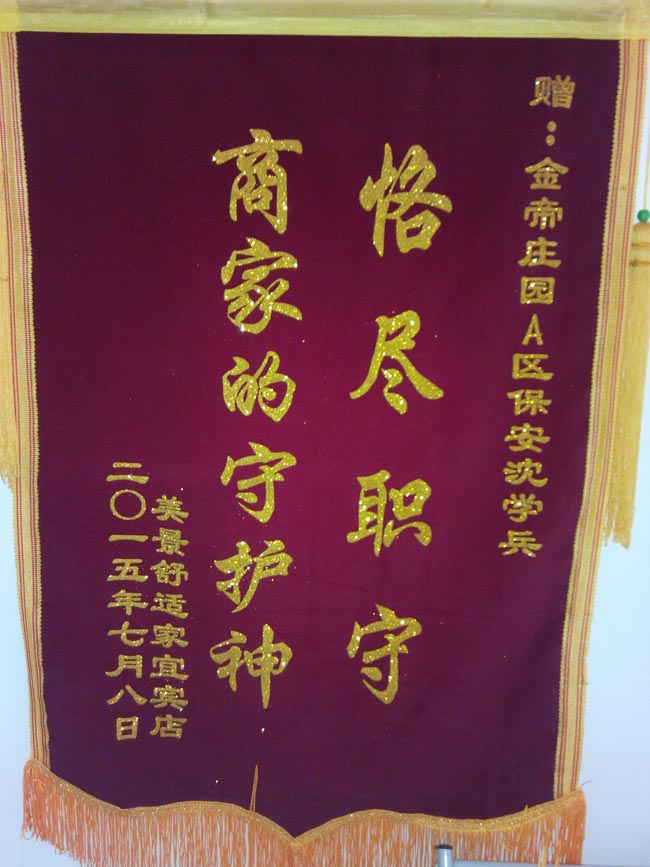 赠：金帝庄园A区保安沈学兵
恪尽职守
商家的守护神
美景舒适家宜宾店
二〇一五年七月八日